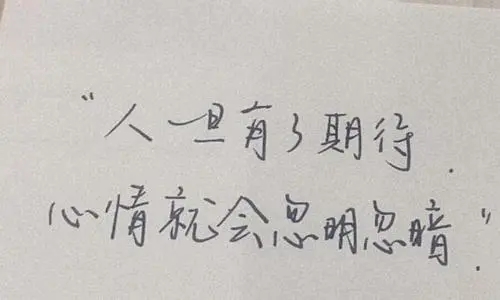 “人一旦有了期待.
心情就会忽明忽暗”.